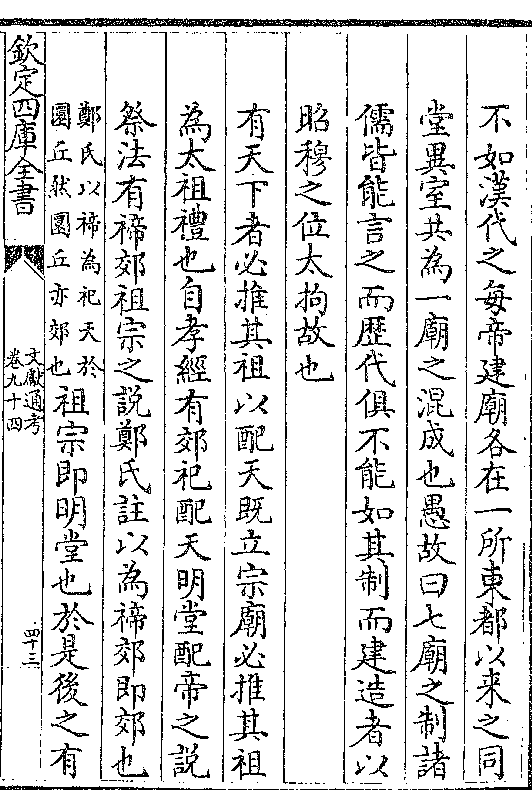 不如漢代之每帝建廟各在一所東都以来之同
堂異室共為一廟之混成也愚故曰七廟之制諸
儒皆能言之而歴代俱不能如其制而建造者以
昭穆之位太拘故也
有天下者必推其祖以配天既立宗廟必推其祖
為太祖禮也自孝經有郊祀配天明堂配帝之説
祭法有禘郊祖宗之説鄭氏註以為禘郊即郊也
鄭氏以禘為祀天於
圜丘然圜丘亦郊也
祖宗即明堂也於是後之有
欽定四庫全書
文獻通考
卷九十四
四十三